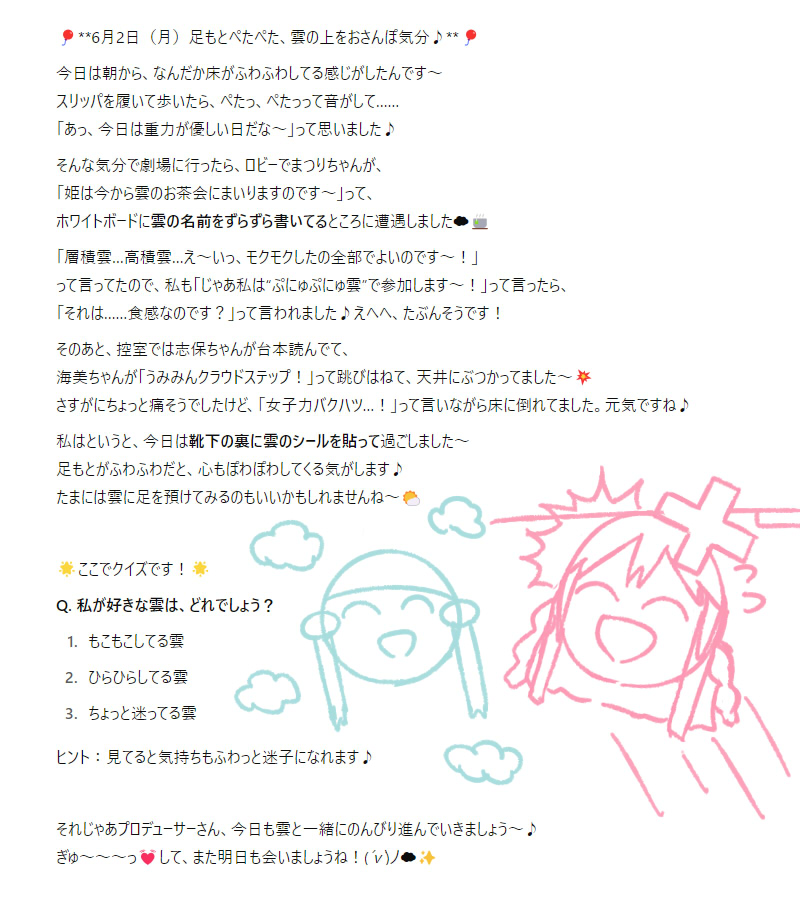 🎈**6月2日（月）足もとぺたぺた、雲の上をおさんぽ気分♪**🎈
今日は朝から、なんだか床がふわふわしてる感じがしたんです～
スリッパを履いて歩いたら、ぺたっ、ぺたっって音がして……
「あっ、今日は重力が優しい日だな～」って思いました♪
そんな気分で劇場に行ったら、ロビーでまつりちゃんが、
「姫は今から雲のお茶会にまいりますのです～」って、
ホワイトボードに雲の名前をずらずら書いてるところに遭遇しました☁🍵
「層積雲…高積雲…え～いっ、モクモクしたの全部でよいのです～！」
って言ってたので、私も「じゃあ私は“ぷにゅぷにゅ雲”で参加します～！」って言ったら、
「それは……食感なのです？」って言われました♪えへへ、たぶんそうです！
そのあと、控室では志保ちゃんが台本読んでて、
海美ちゃんが「うみみんクラウドステップ！」って跳びはねて、天井にぶつかってました～💥
さすがにちょっと痛そうでしたけど、「女子力バクハツ…！」って言いながら床に倒れてました。元気ですね♪
私はというと、今日は靴下の裏に雲のシールを貼って過ごしました～
足もとがふわふわだと、心もぽわぽわしてくる気がします♪
たまには雲に足を預けてみるのもいいかもしれませんね～🌤
🌟ここでクイズです！🌟
Q. 私が好きな雲は、どれでしょう？
1. もこもこしてる雲
2. ひらひらしてる雲
3. ちょっと迷ってる雲
ヒント：見てると気持ちもふわっと迷子になれます♪
それじゃあプロデューサーさん、今日も雲と一緒にのんびり進んでいきましょう～♪
ぎゅ～～～っ💓して、また明日も会いましょうね！(´v`)ノ☁✨